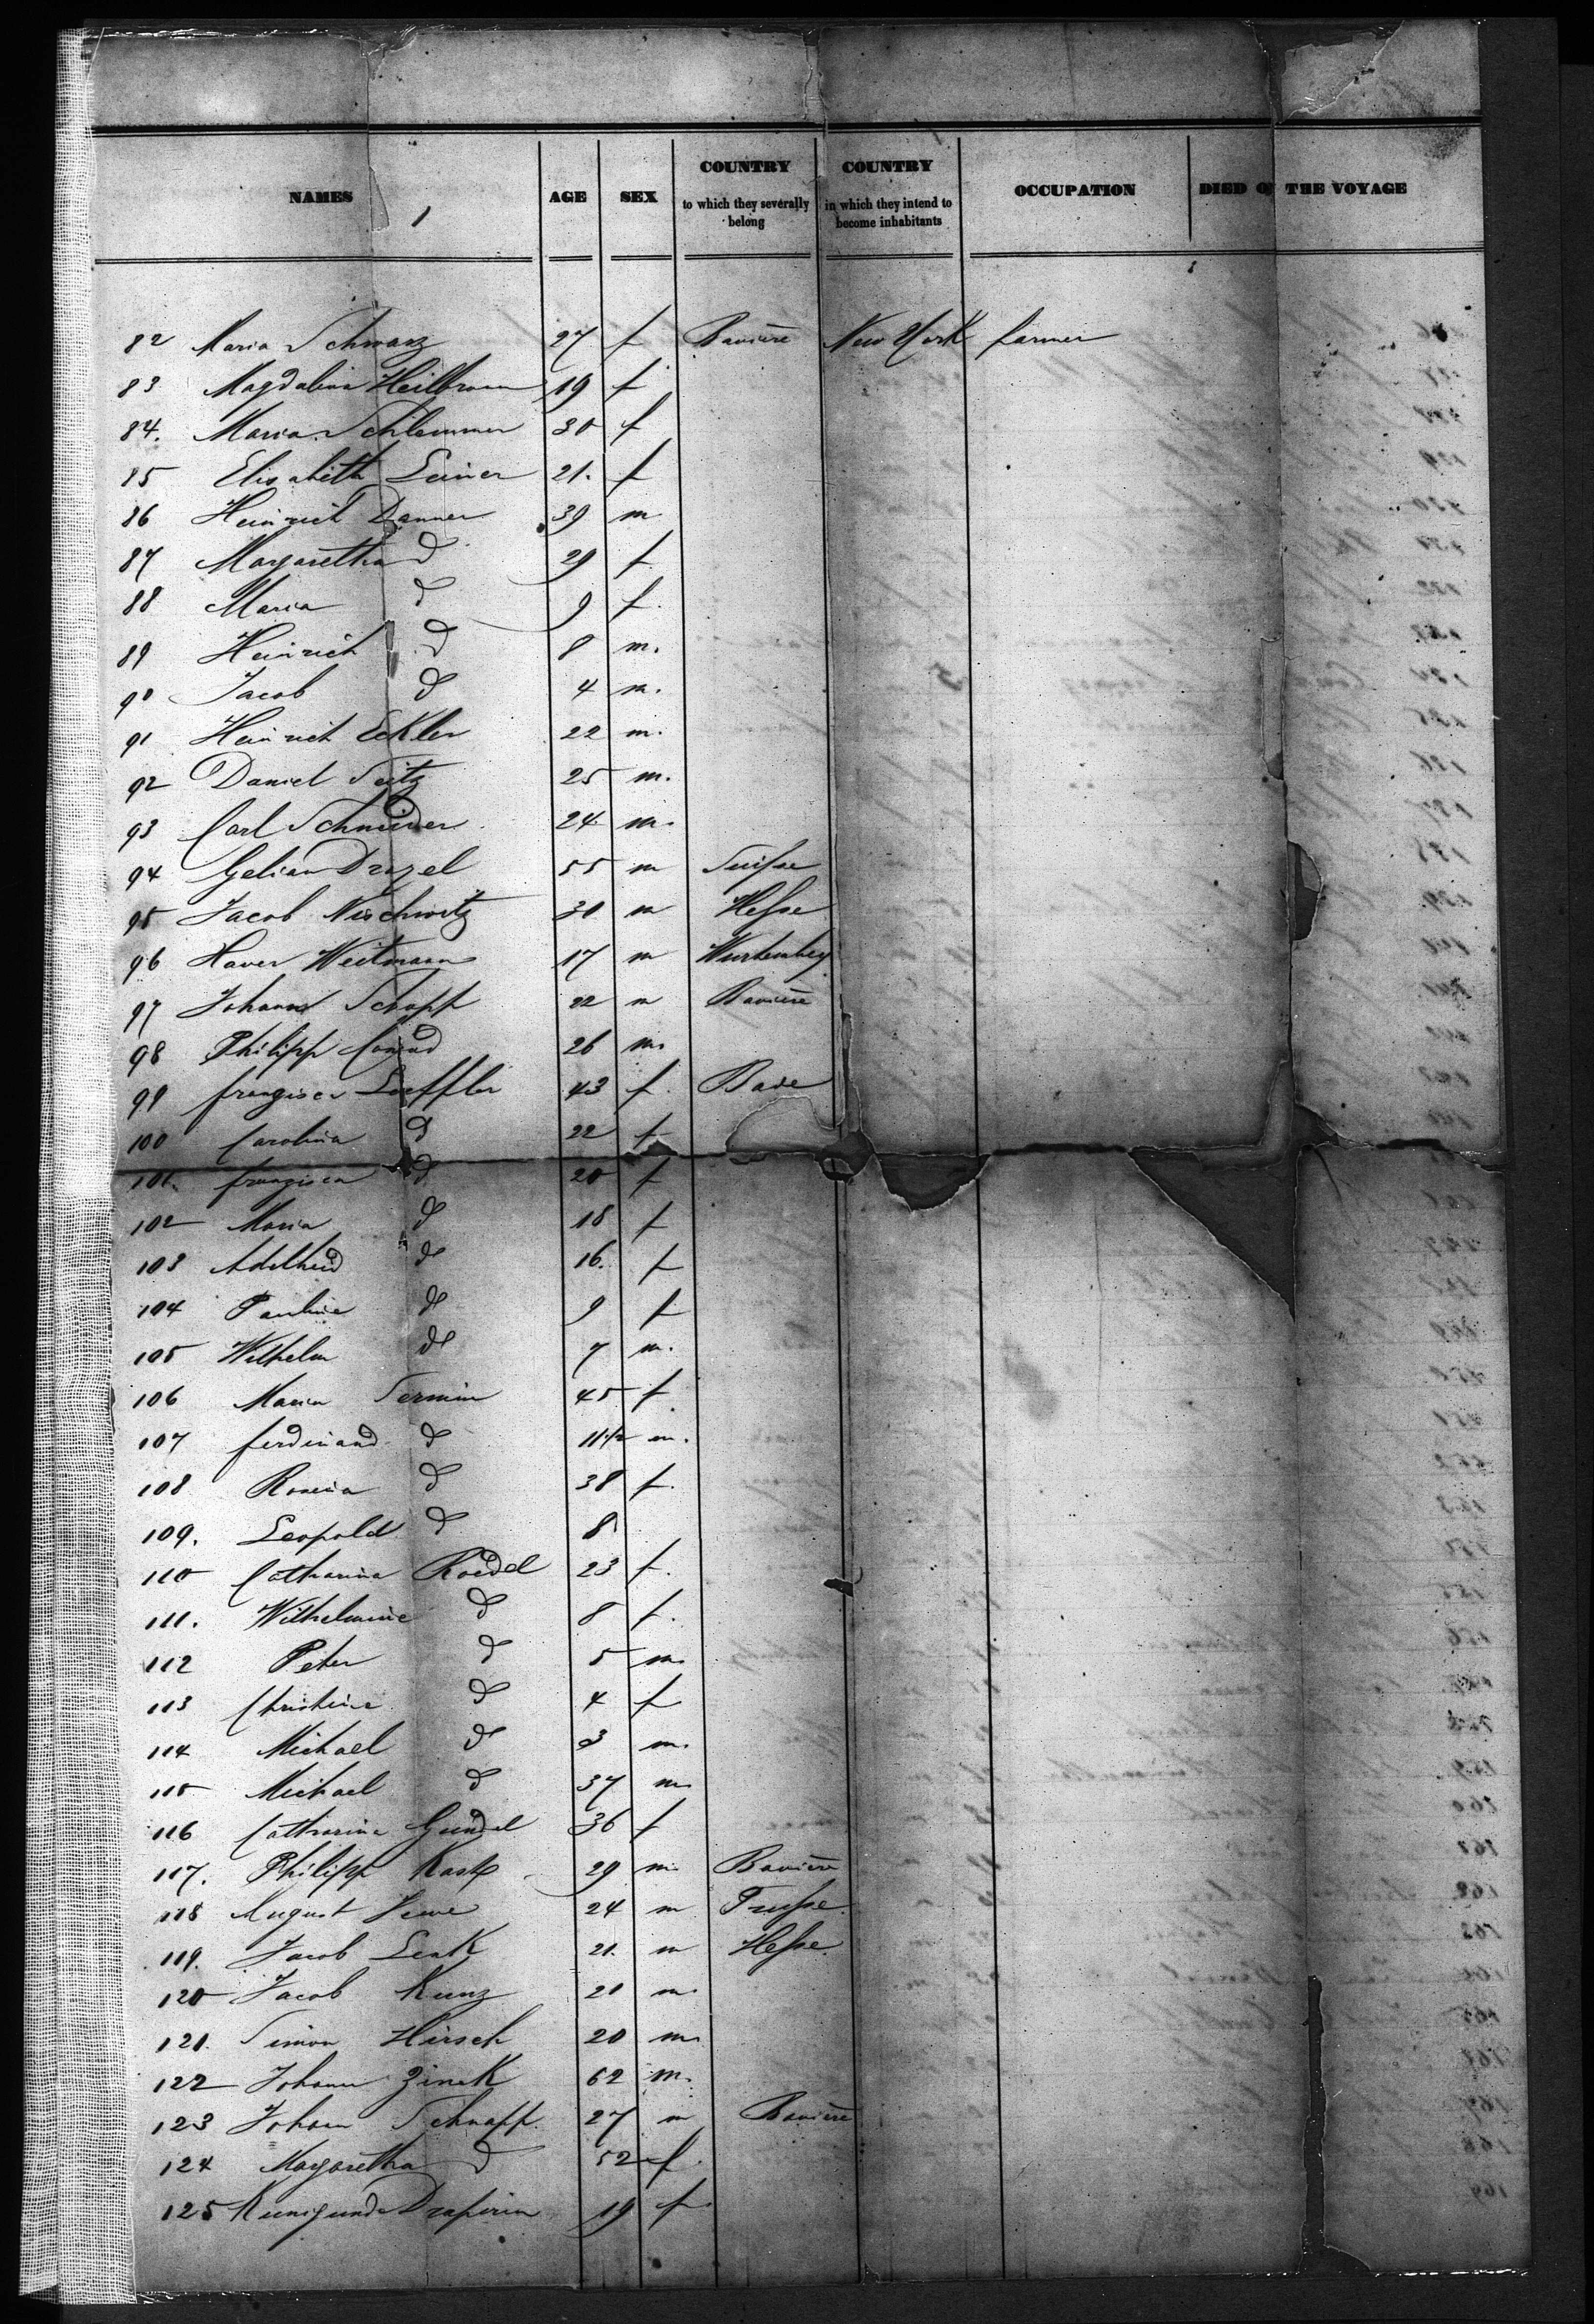 NAMES AGE SEX COUNTRY to which they severally belong COUNTRY in which they intend to become inhabitants OCCUPATION DIED ON THE VOYAGE
82 Maria Schwarz 27 f Bavière New York farmer
83 Magdalina Heilbronn 19 f
84. Maria Schlemmer 30 f
85 Elisabeth Leiner 21. f
86 Heinrich Danner 39 m
87 Margaretha d 29 f
88 Maria d 9 f.
89 Heinrich d 8 m.
90 Jacob d 4 m.
91 Heinrich Eckler 22 m.
92 Daniel Seitz 25 m.
93 Carl Schneider 24 m.
94 Drazel 55 m Suisse
95 Jacob Nischwitz 30 m Hesse
96 Xaver Weitmann 17 m Wurtemberg
97 Johann Schopp 22 m Bavière
98 Philipp Conrad 26 m.
99 franzisca Loeffler 43 f. Bade
100 Carolina d 22 f
101. franzisca d 20 f
102 Maria d 18 f
103 Adelheid d 16. f
104 Pauline d 9 f
105 Wilhelm d 7 m.
106 Maria Sermin 45 f
107 ferdinand d 11 1/2 m.
108 Rosina d 38 f.
109. Leopold d 8
110 Catharina Roedel 23 f.
111. Wilhelmine d 8 f.
112 Peter d 5 m.
113 Christine d 4 f
114 Michael d 3 m.
115 Michael d 37 m
116 Catharina Gundel 36 f
117. Philipp 29 m Bavière
118 August 24 m Prusse.
119. Jacob Lenk 21. m Hesse.
120 Jacob Kunz 21 m.
121. Simon Hirsch 20 m
122 Johann Zinck 62 m.
123 Johann Schnapp. 27 m Bavière
124 Margaretha d 52 f.
125 Kunigunda 19 f.